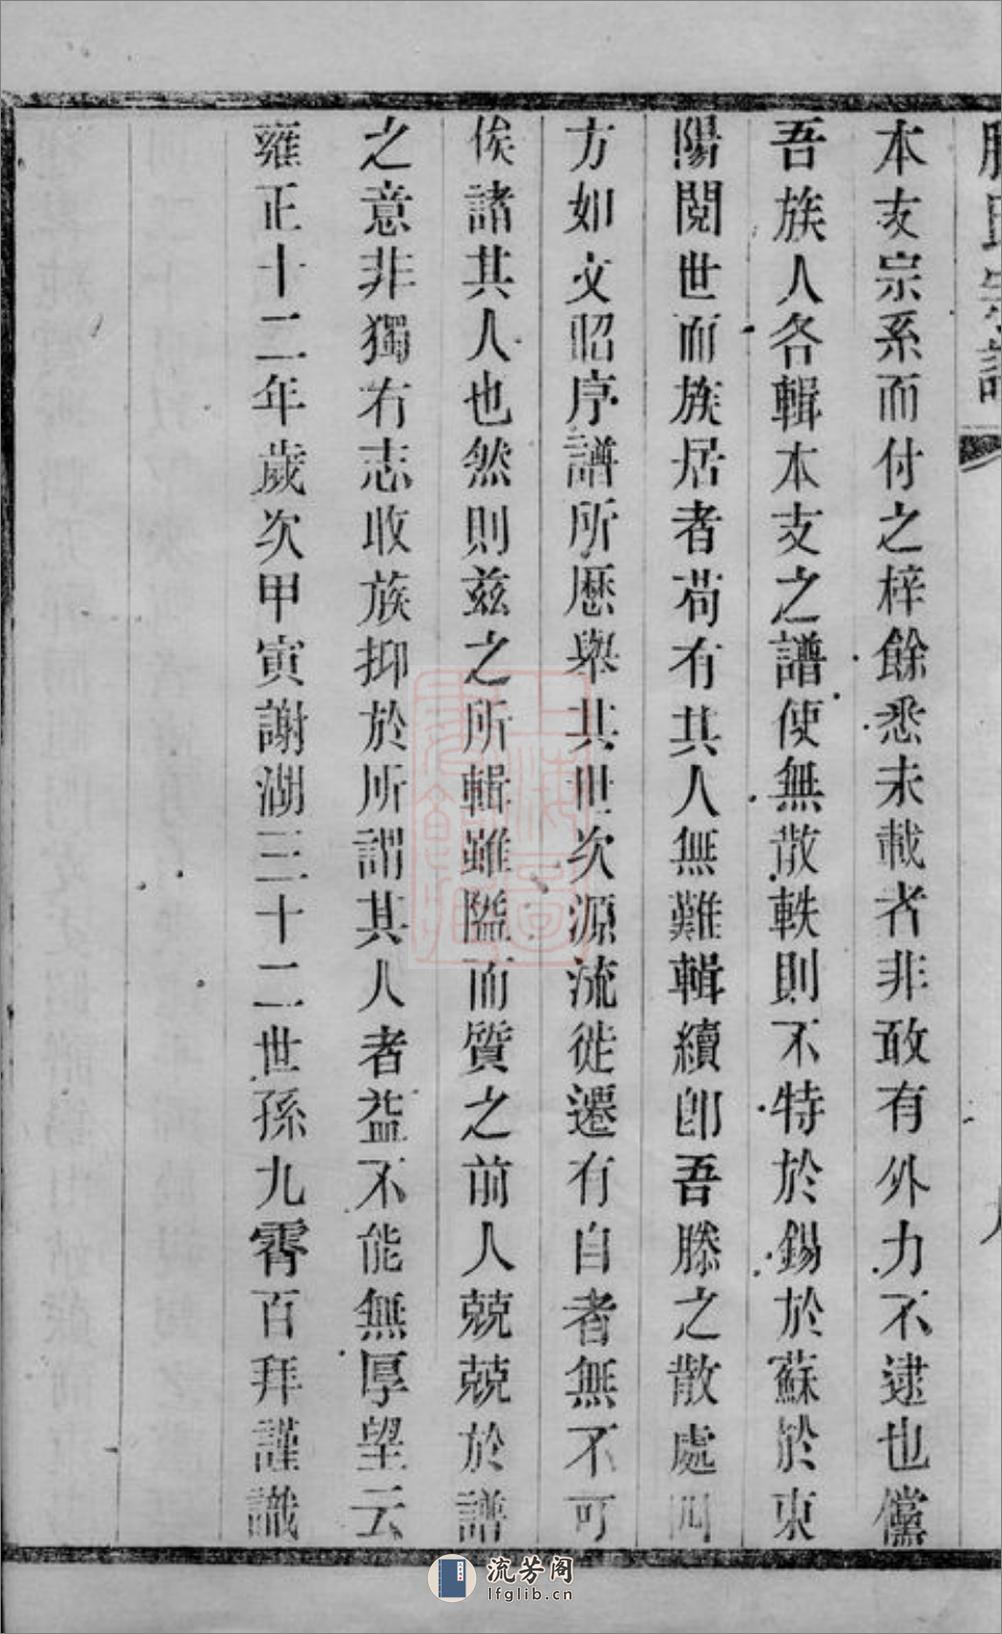 滕氏宗譜
本支宗系而付之梓餘悉未載者非敢有外力不逮也儻
吾族人各輯本支之譜使無散軼則不特於錫於蘇於東
陽閱世而族居者苟有其人無難輯續卽吾滕之散處四
方如文昭序譜所歷舉其世次源流徙遷有自者無不可
俟諸其人也然則兹之所輯雖隘而質之前人兢兢於譜
之意非獨有志收族抑於所謂其人者益不能無厚望云
雍正十二年歲次甲寅謝湖三十二世孫九霄百拜謹識
流芳阁
lfglib.cn